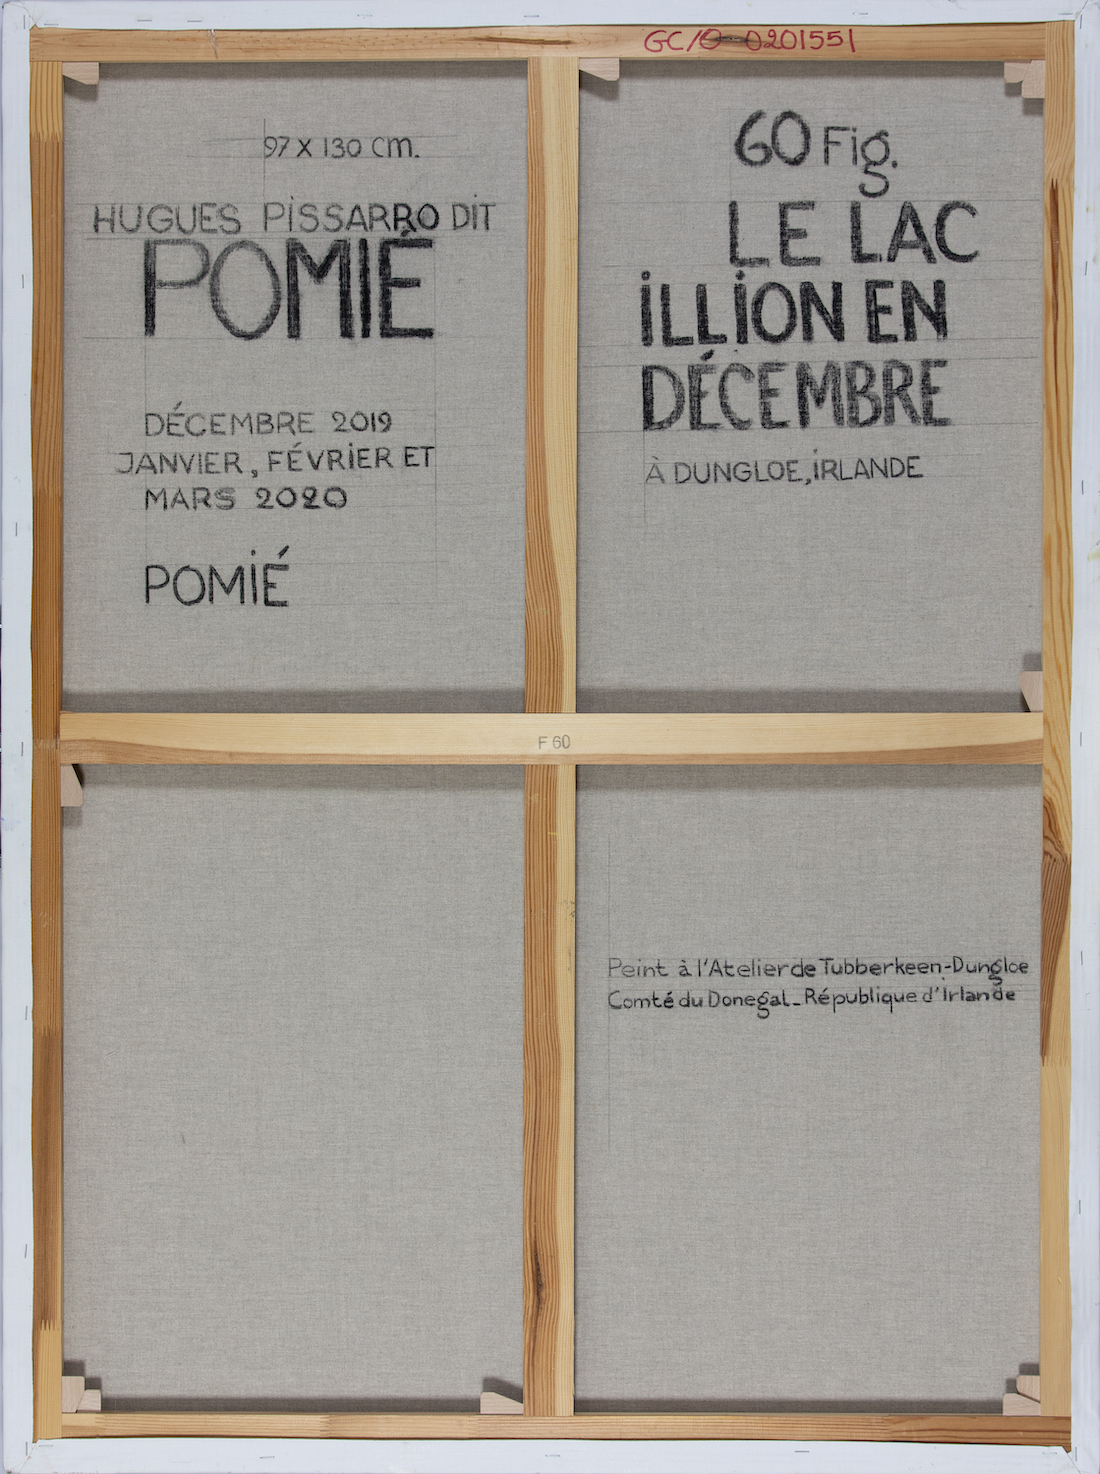 GC/O 0201551
97 X 130 cm.
HUGUES PISSARRO DIT
POMIÉ
DÉCEMBRE 2019
JANVIER, FÉVRIER ET
MARS 2020
POMIÉ
60 Fig.
LE LAC
ILLION EN
DÉCEMBRE
À DUNGLOE, IRLANDE
F 60
Peint à l'Atelier de Tubberkeen-Dungloe
Comté du Donegal_République d'Irlande